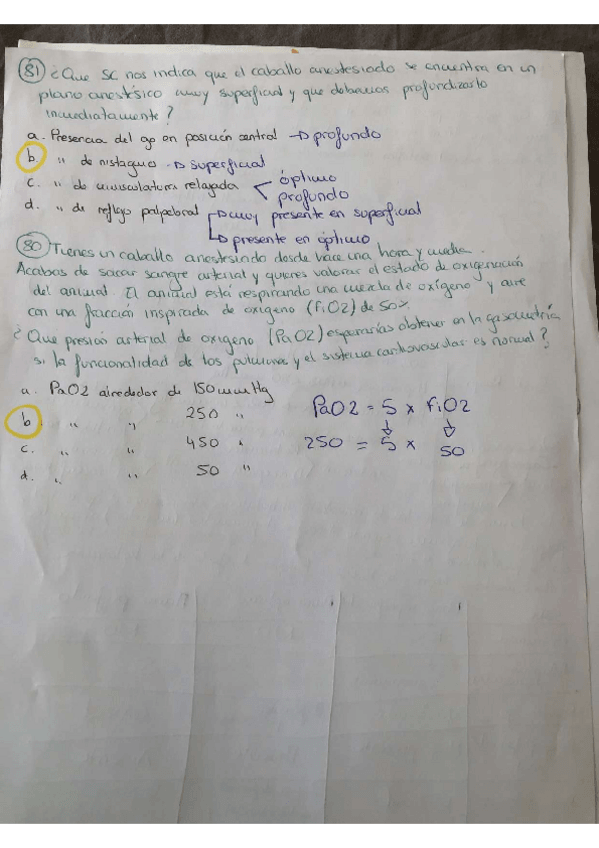 81) ¿Que SC nos indica que el caballo anestesiado se encuentra en un
plano anestésico muy superficial y que debamos profundizarlo
inmediatamente?
a. Presencia del ojo en posición central → profundo
b. " de nistagmo → superficial
c. " de musculatura relajada < óptimo
profundo
d. " de reflejo palpebral → muy presente en superficial
→ presente en óptimo
80) Tienes un caballo anestesiado desde hace una hora y media.
Acabas de sacar sangre arterial y quieres valorar el estado de oxigenación
del animal. El animal está respirando una mezcla de oxígeno y aire
con una fracción inspirada de oxígeno (FiO2) de 50%.
¿Que presión arterial de oxigeno (PaO2) esperarías obtener en la gasometría
si la funcionalidad de los pulmones y el sistema cardiovascular es normal?
a. PaO2 alrededor de 150 mmHg
b. " " 250 "
c. " " 450 "
d. " " 50 "
PaO2 = 5 x FiO2
↓ ↓
250 = 5 x 50